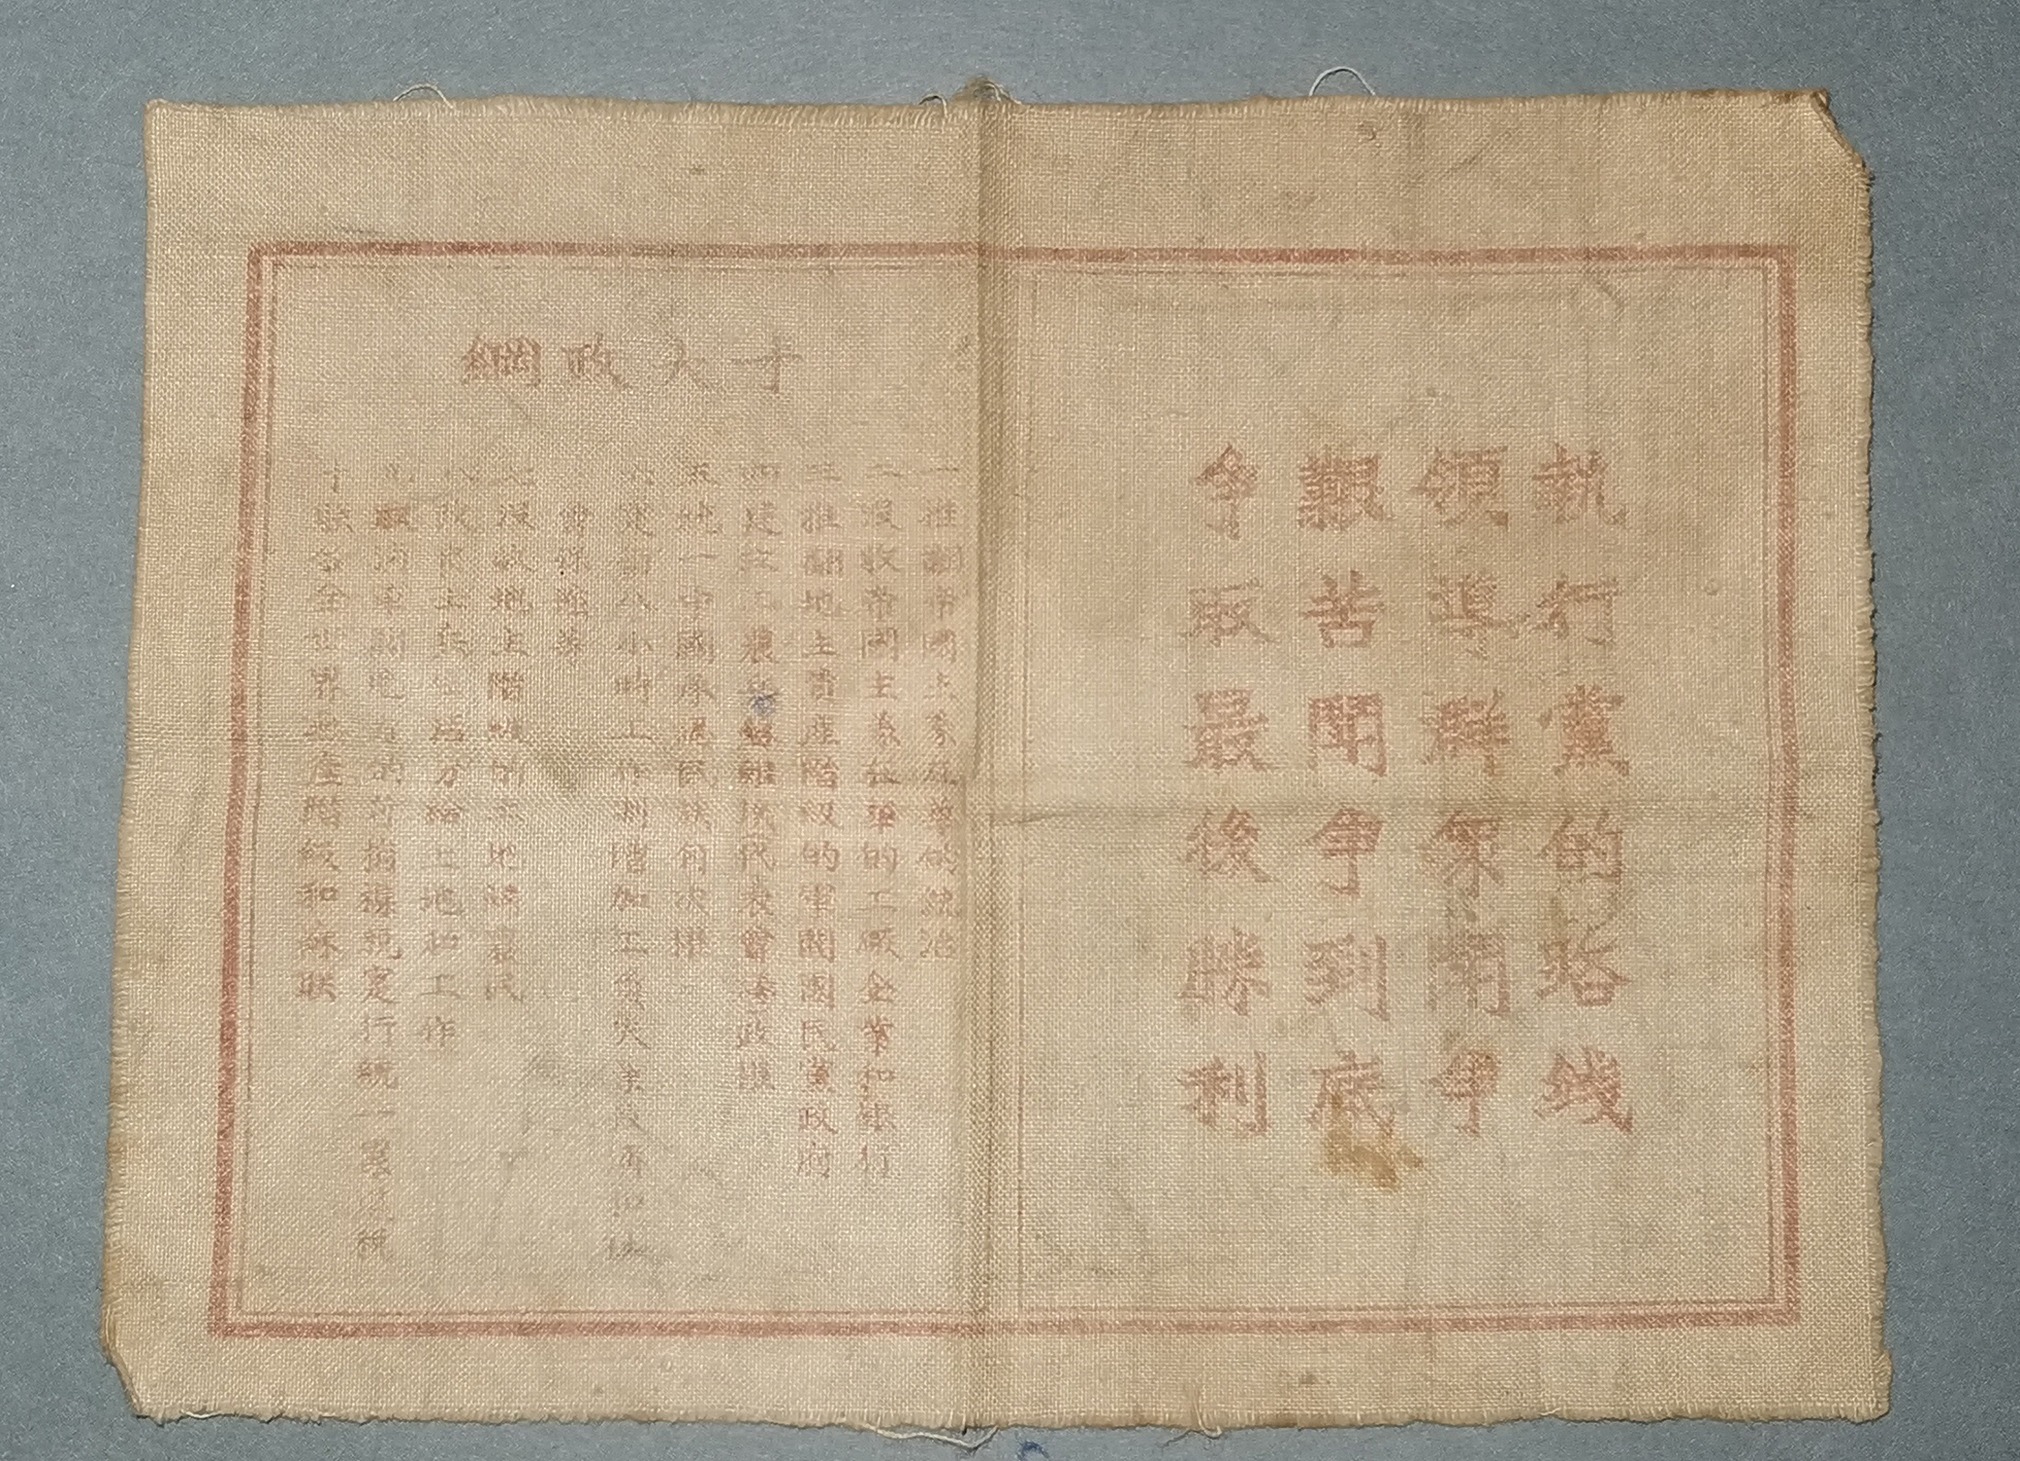 執行黨的路綫
領導群众鬭爭
艱苦鬭争到底
争取最後勝利
十大政綱
一推翻帝國主义在華的統治
二沒收帝國主义在華的工厰企業和銀行
三推翻地主資產階級的軍閥國民黨政府
四建立工農兵蘇維埃代表會議政權
五統一中國承認民族自决權
六实行八小時工作制增加工資失業救濟和
會保險等
七沒收地主階級的土地歸農民
兵士 土地和工作
取消軍閥地方的苛捐雜稅实行統一累進稅
十联合全世界無產階級和蘇联